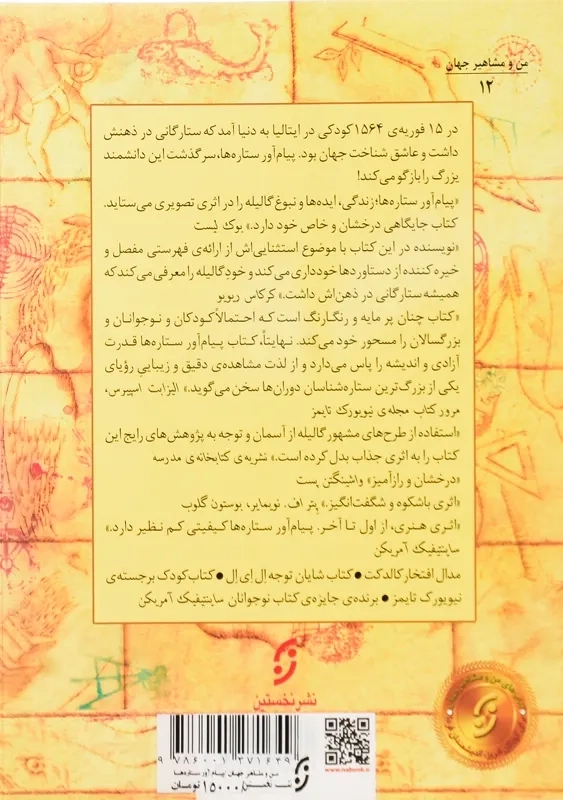 من و مشاهیر جهان
۱۲
در ۱۵ فوریه‌ی ۱۵۶۴ کودکی در ایتالیا به دنیا آمد که ستارگانی در ذهنش
داشت و عاشق شناخت جهان بود. پیام‌آور ستاره‌ها، سرگذشت این دانشمند
بزرگ را بازگو می‌کند!
«پیام‌آور ستاره‌ها؛ زندگی، ایده‌ها و نبوغ گالیله را در اثری تصویری می‌ستاید.
کتاب جایگاهی درخشان و خاص خود دارد.» بوک لیست
«نویسنده در این کتاب با موضوع استثنایی‌اش از ارائه‌ی فهرستی مفصل و
خیره کننده از دستاوردها خودداری می‌کند و خودِ گالیله را معرفی می‌کند که
همیشه ستارگانی در ذهن‌اش داشت.» کرکاس ریویو
«کتاب چنان پر مایه و رنگارنگ است که احتمالاً کودکان و نوجوانان و
بزرگسالان را مسحور خود می‌کند. نهایتاً، کتاب پیام‌آور ستاره‌ها قدرت
آزادی و اندیشه را پاس می‌دارد و از لذت مشاهده‌ی دقیق و زیباییِ رؤیای
یکی از بزرگ‌ترین ستاره‌شناسان دوران‌ها سخن می‌گوید.» الیزابت اسپیرس،
مرور کتاب مجله‌ی نیویورک تایمز
«استفاده از طرح‌های مشهور گالیله از آسمان و توجه به پژوهش‌های رایج این
کتاب را به اثری جذاب بدل کرده است.» نشریه‌ی کتابخانه‌ی مدرسه
«درخشان و رازآمیز» واشینگتن پست
«اثری باشکوه و شگفت‌انگیز.» پتر اف. نویمایر، بوستون گلوب
«اثری هنری، از اول تا آخر. پیام‌آور ستاره‌ها کیفیتی کم نظیر دارد.»
ساینتیفیک آمریکن
مدال افتخار کالدکت ● کتاب شایان توجه اِل اِی اِل ● کتاب کودک برجسته‌ی
نیویورک تایمز ● برنده‌ی جایزه‌ی کتاب نوجوانان ساینتیفیک آمریکن
نشر نخستین
9 786001 371639
www.nabook.ir
من و مشاهر جهان پیام آور ستاره‌ها
۱۵۰۰۰ تومان